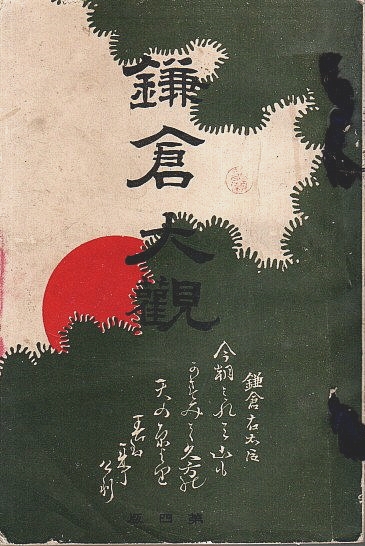 鎌倉大觀
鎌倉右大臣
今朝みれは山も
かすみて久方の
天の原より
春は
来に
けり
第四版